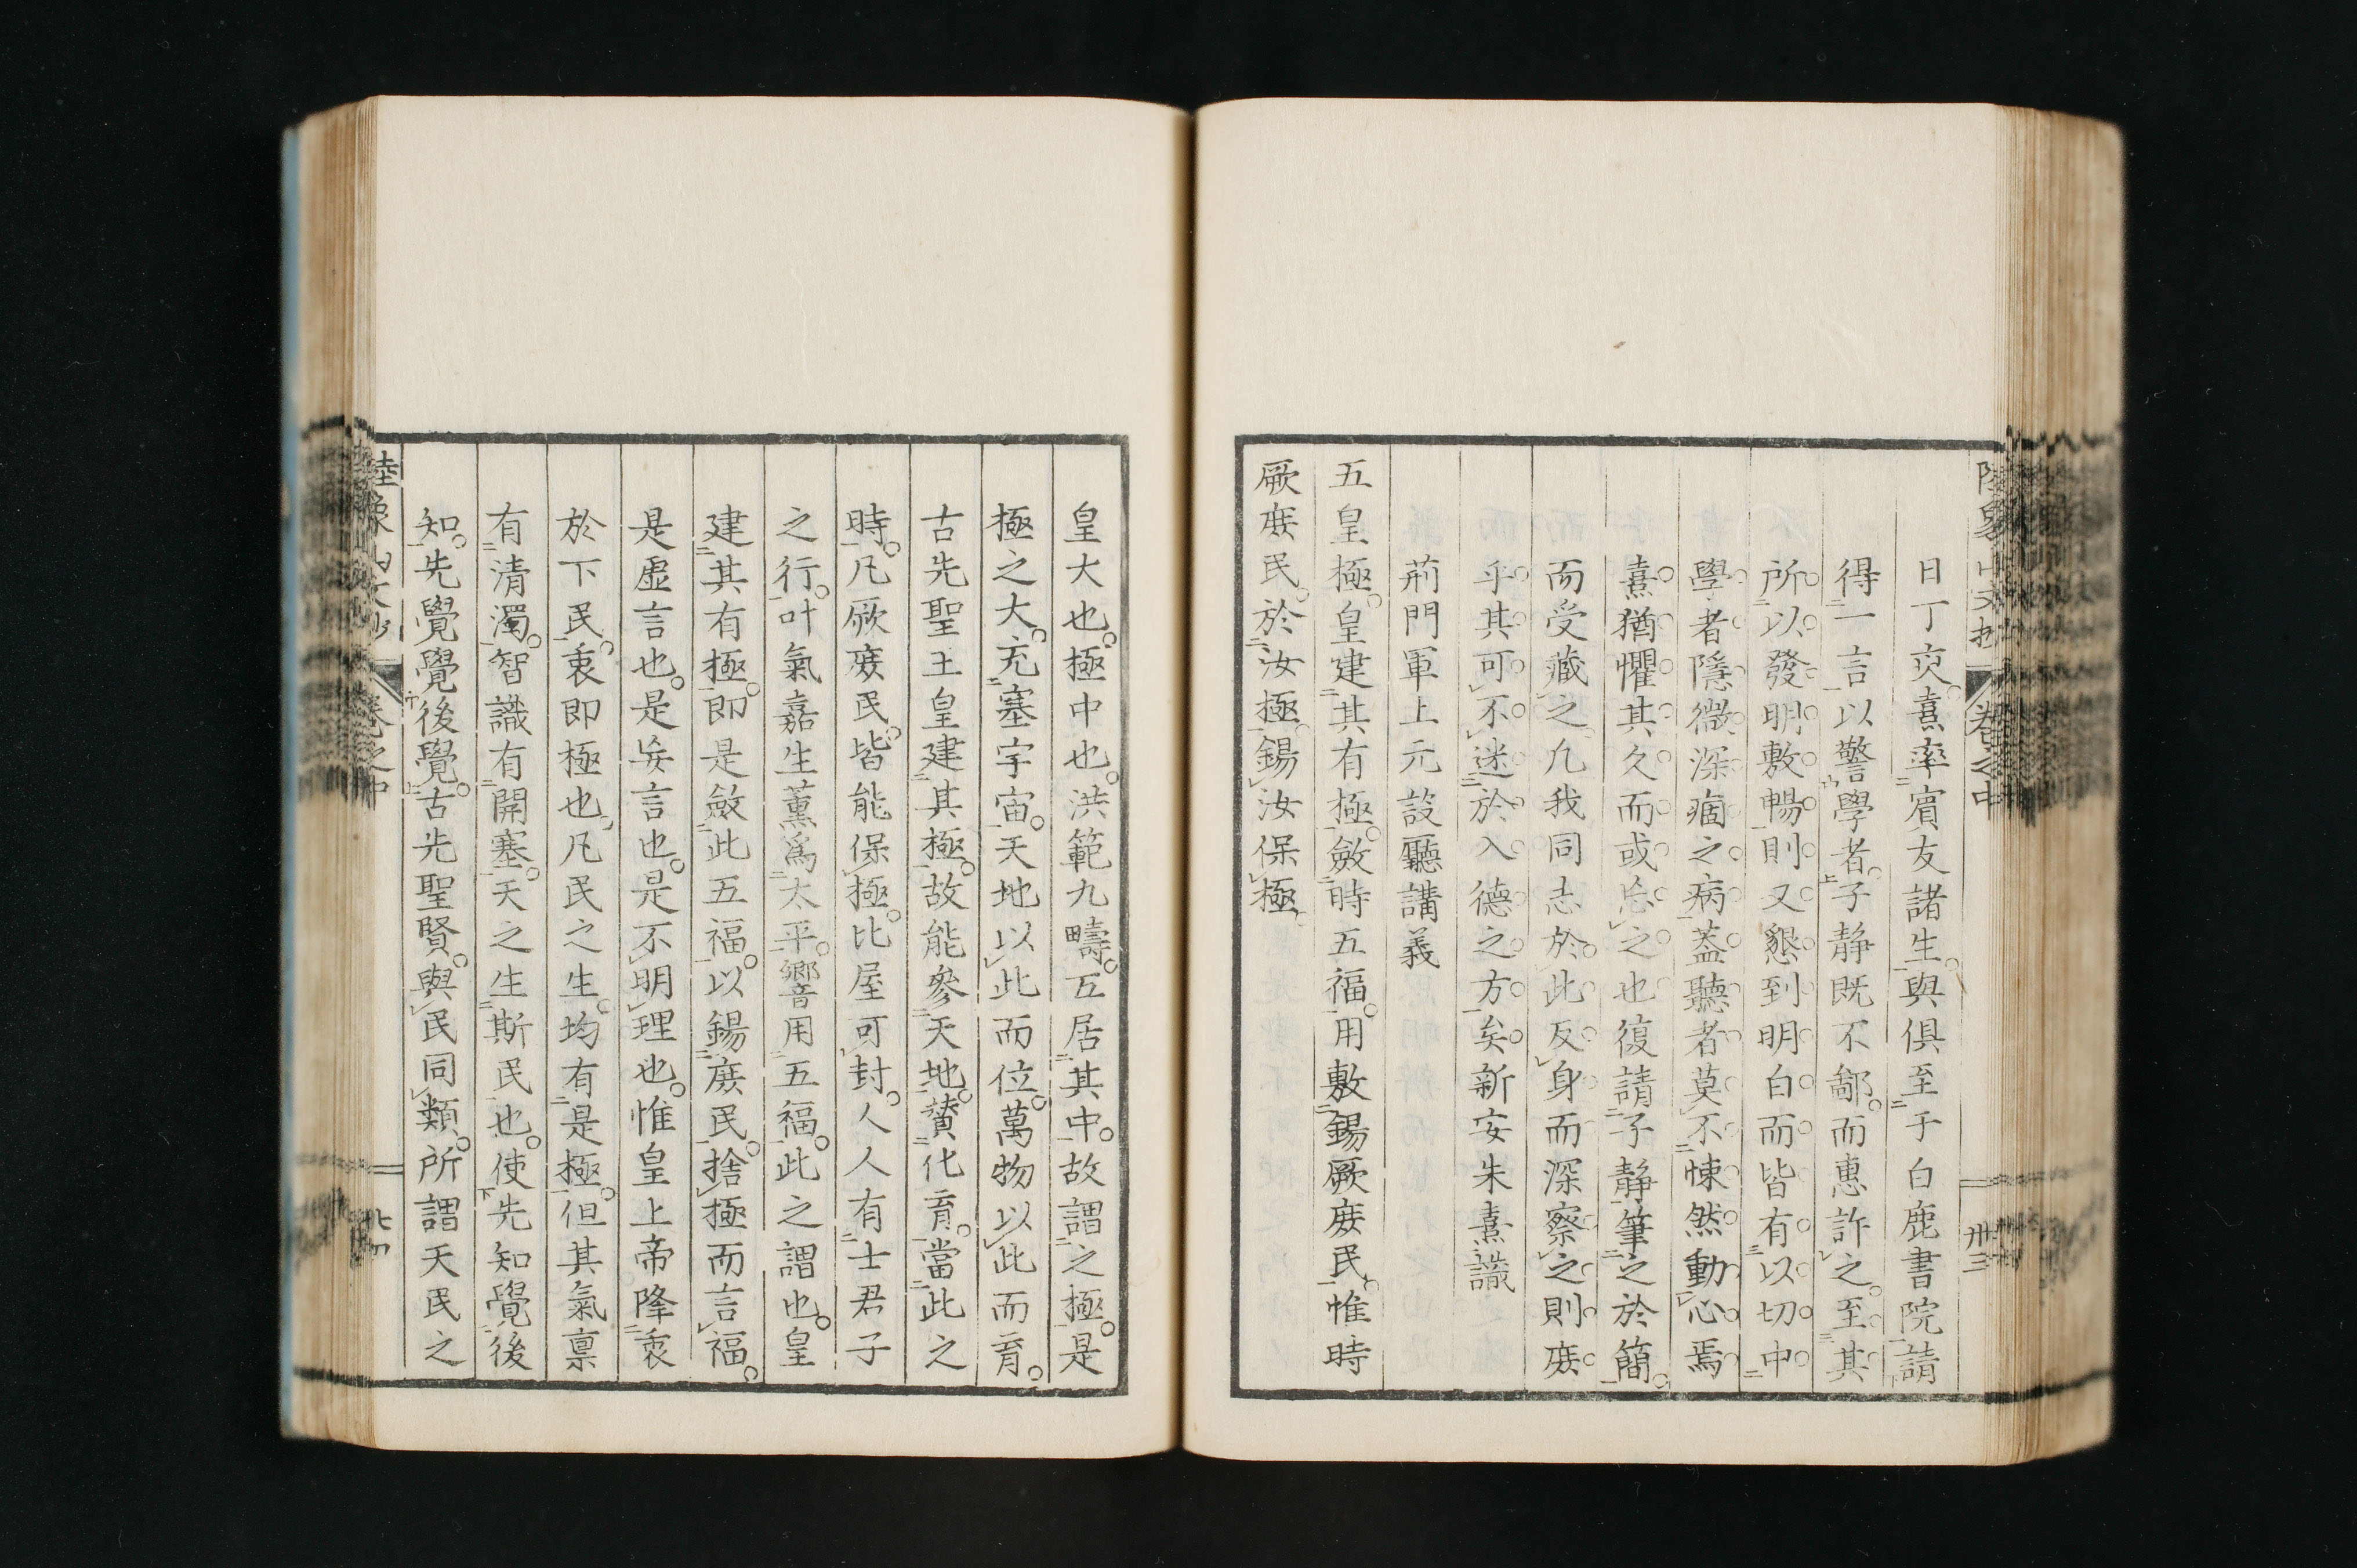 陸象山文抄　卷之中　卅三
日丁亥熹率賓友諸生與俱至于白鹿書院請
得一言以警學者子静既不鄙而惠許之至其
所以發明敷暢則又懇到明白而皆有以切中
學者隱微深痼之病蓋聽者莫不悚然動心焉
熹猶懼其久而或忘之也復請子静筆之於簡
而受藏之凡我同志於此反身而深察之則庶
乎其可不迷於入德之方矣新安朱熹識
荊門軍上元設廳講義
五皇極皇建其有極斂時五福用敷錫厥庶民惟時
厥庶民於汝極錫汝保極
皇大也極中也洪範九疇五居其中故謂之極是
極之大充塞宇宙天地以此而位萬物以此而育
古先聖王皇建其極故能參天地贊化育當此之
時凡厥庶民皆能保極比屋可封人人有士君子
之行叶氣嘉生薰爲太平嚮用五福此之謂也皇
建其有極即是斂此五福以錫庶民捨極而言福
是虛言也是妄言也是不明理也惟皇上帝降衷
於下民衷即極也凡民之生均有是極但其氣禀
有清濁智識有開塞天之生斯民也使先知覺後
知先覺覺後覺古先聖賢與民同類所謂天民之
陸象山文抄　卷之中